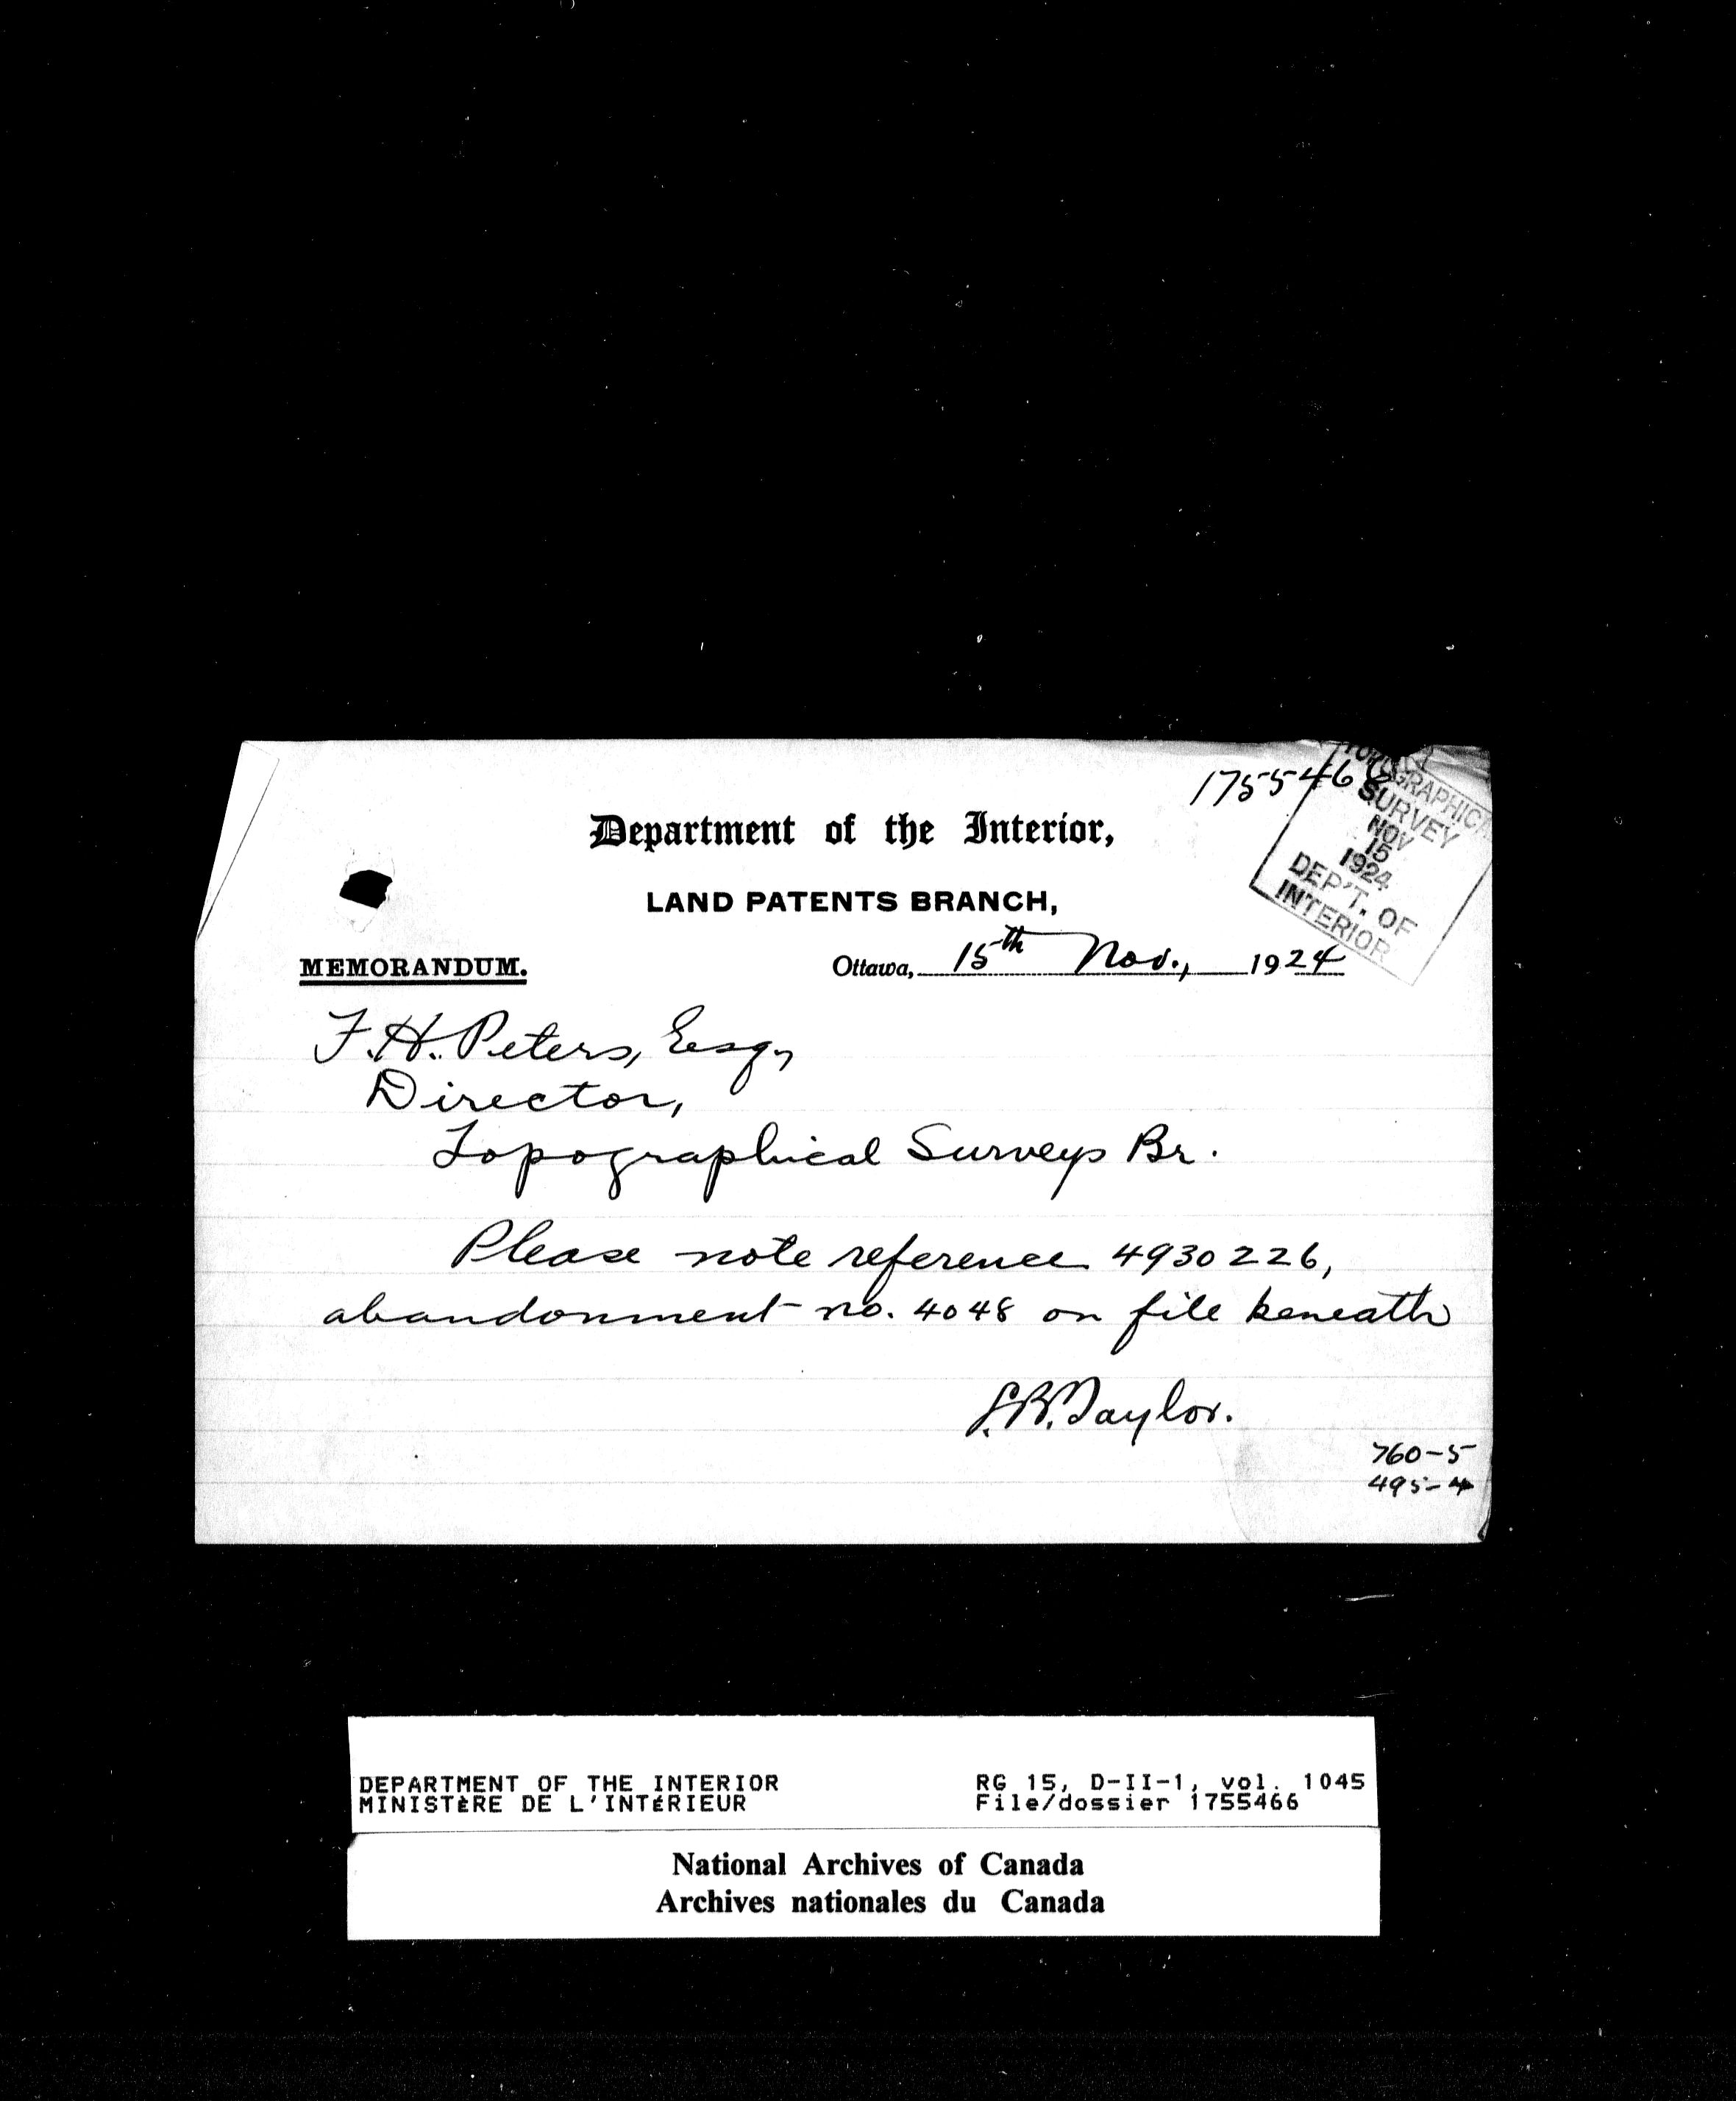 1755466
TOPOGRAPHICAL
SURVEY
NOV
15
1924
DEP'T. OF
INTERIOR
Department of the Interior,
LAND PATENTS BRANCH,
MEMORANDUM.
Ottawa, 15th Nov., 1924
F.H. Peters, Esq,
Director,
Topographical Surveys Br.
Please note reference 4930226,
abandonment no. 4048 on file beneath
Taylor.
760-5
495-4
DEPARTMENT OF THE INTERIOR
MINISTÈRE DE L'INTÉRIEUR
RG 15, D-II-1, vol. 1045
File/dossier 1755466
National Archives of Canada
Archives nationales du Canada